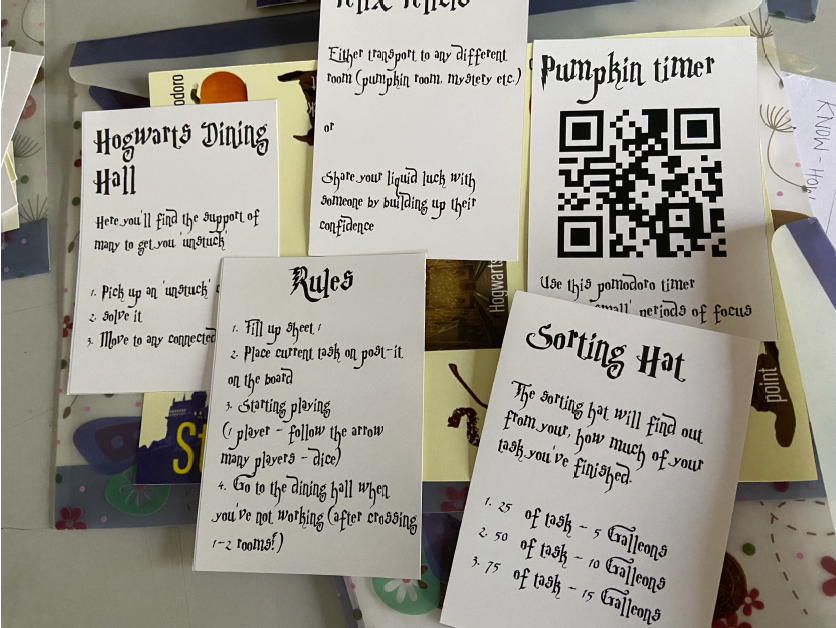 Felix Felicis
Either transport to any different
room (pumpkin room, mystery etc.)
or
Share your liquid luck with
someone by building up their
confidence
Pumpkin timer
Use this pomodoro timer
small' periods of focus
Hogwarts Dining
Hall
Here you'll find the support of
many to get you 'unstuck'
1. Pick up an 'unstuck'
2. solve it
3. Move to any connected
Rules
1. Fill up sheet 1
2. Place current task on post-it
on the board
3. Starting playing
(1 player - follow the arrow
many players - dice)
4. Go to the dining hall when
you've not working (after crossing
1-2 rooms?)
Sorting Hat
The sorting hat will find out
from your, how much of your
task you've finished.
1. 25 of task - 5 Galleons
2. 50 of task - 10 Galleons
3. 75 of task - 15 Galleons
odoro
Hogwarts
point
St
KNOW - HOW